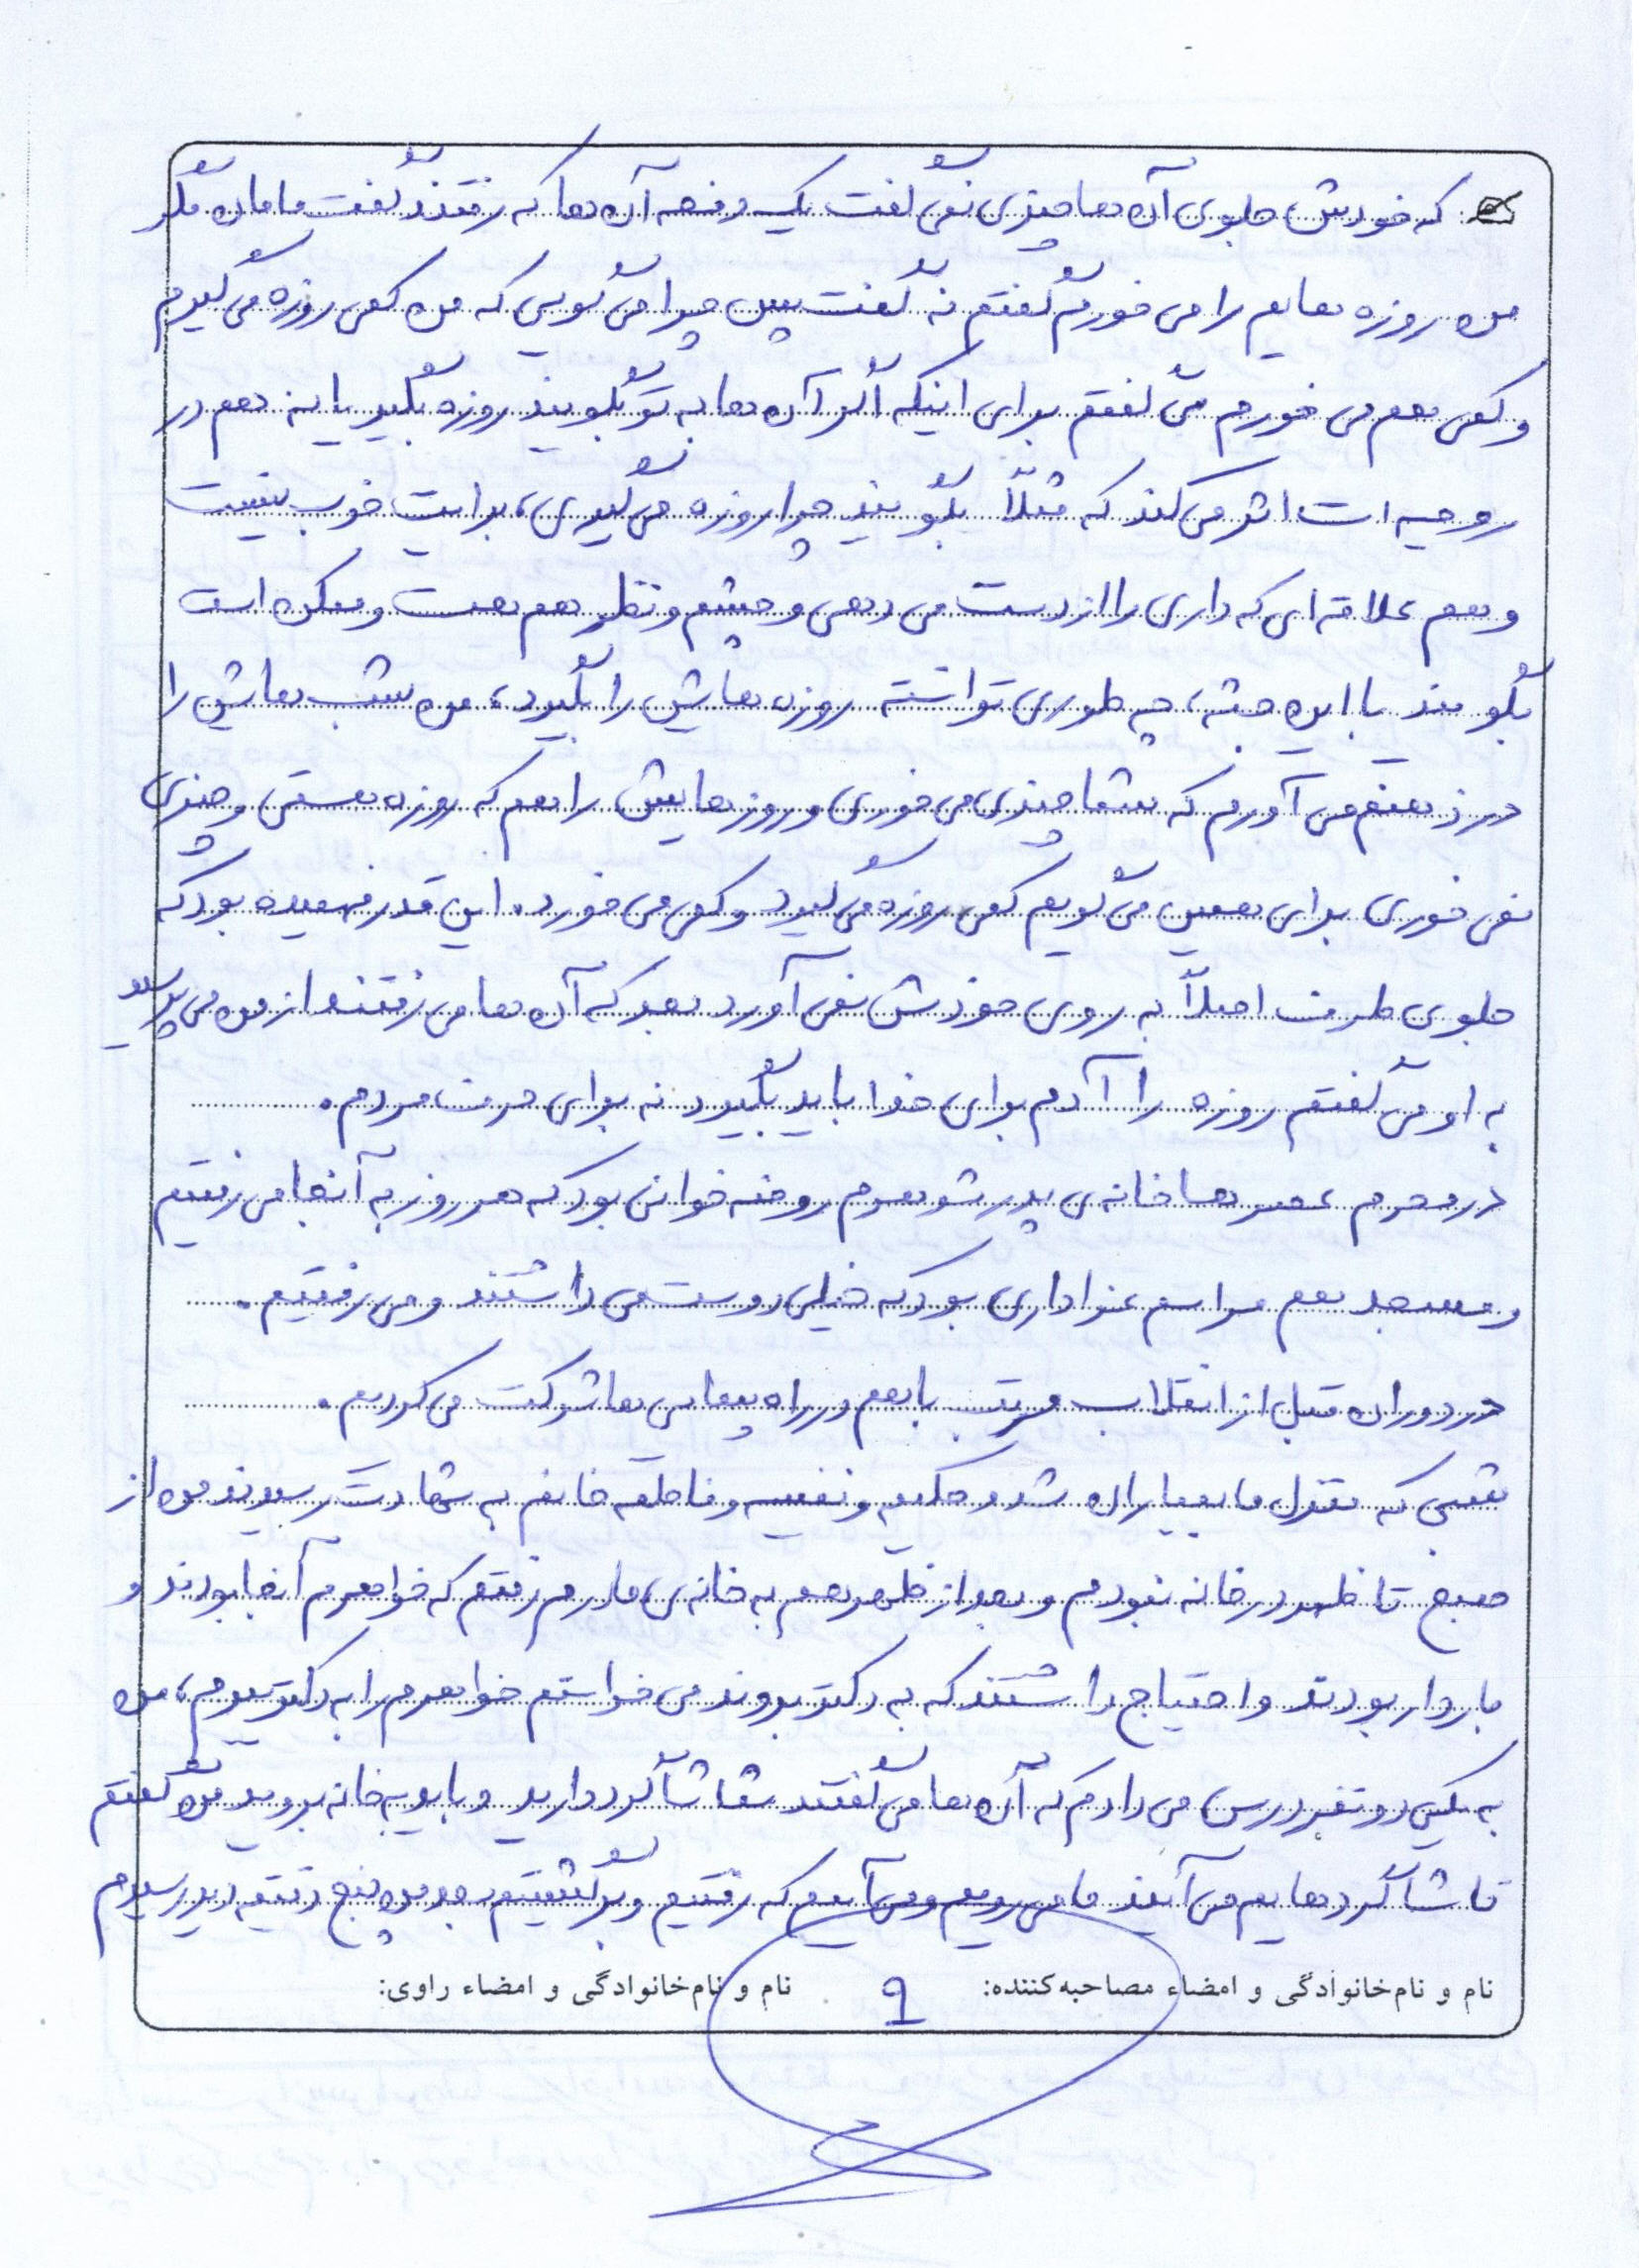 که خودش جلوی آن ها چیزی نمی گفت یک دفعه آن ها که رفتند گفت مامان مگر
من روزه هایم را می خورم گفتم نه گفت پس چرا می گویی که من کمی روزه می گیرم
و کمی هم می خورم می گفتم برای اینکه اگر آن ها به تو بگویند روزه بگیر یا نه هم در
روحیه ات اثر می کند که مثلاً بگویند چرا روزه می گیری، برایت خوب نیست
و هم علاقه ای که داری را از دست می دهی و چشم و نظر هم هست و ممکن است
بگویند با این جثه، چه طوری توانسته روزه هایش را بگیرد، من شب هایش را
در ذهنم می آورم که شما چیزی می خوری و روزهایش را هم که روزه هستی و چیزی
نمی خوری برای همین می گویم کمی روزه می گیرد و کمی می خورد. این قدر فهمیده بود که
جلوی طرف اصلاً به روی خودش نمی آورد بعد که آن ها می رفتند از من می پرسید
به او می گفتم روزه را آدم برای خدا باید بگیرد نه برای حرف مردم.
در محرم عصرها خانه ی پدر شوهرم روضه خوانی بود که هر روز به آنجا می رفتیم
و مسجد هم مراسم عزاداری بود که خیلی دوست می داشتند و می رفتیم.
در دوران قبل از انقلاب مرتب با هم در راهپیمایی ها شرکت می کردیم.
شبی که منزل ما بمباران شد و حکیمه و نفیسه و فاطمه خانم به شهادت رسیدند من از
صبح تا ظهر در خانه نبودم و بعد از ظهر هم به خانه ی مادرم رفتم که خواهرم آنجا بودند و
باردار بودند و احتیاج داشتند که به دکتر بروند می خواستم خواهرم را به دکتر ببرم، من
به یکی دو نفر درس می دادم که آن ها می گفتند شما شاگرد دارید و باید به خانه بروید من گفتم
تا شاگردهایم می آیند ما می رویم و می آییم که رفتیم و برگشتیم بعد من پنج دقیقه دیر رسیدم
نام و نام‌خانوادگی و امضاء مصاحبه‌کننده: ۹ نام و نام‌خانوادگی و امضاء راوی: